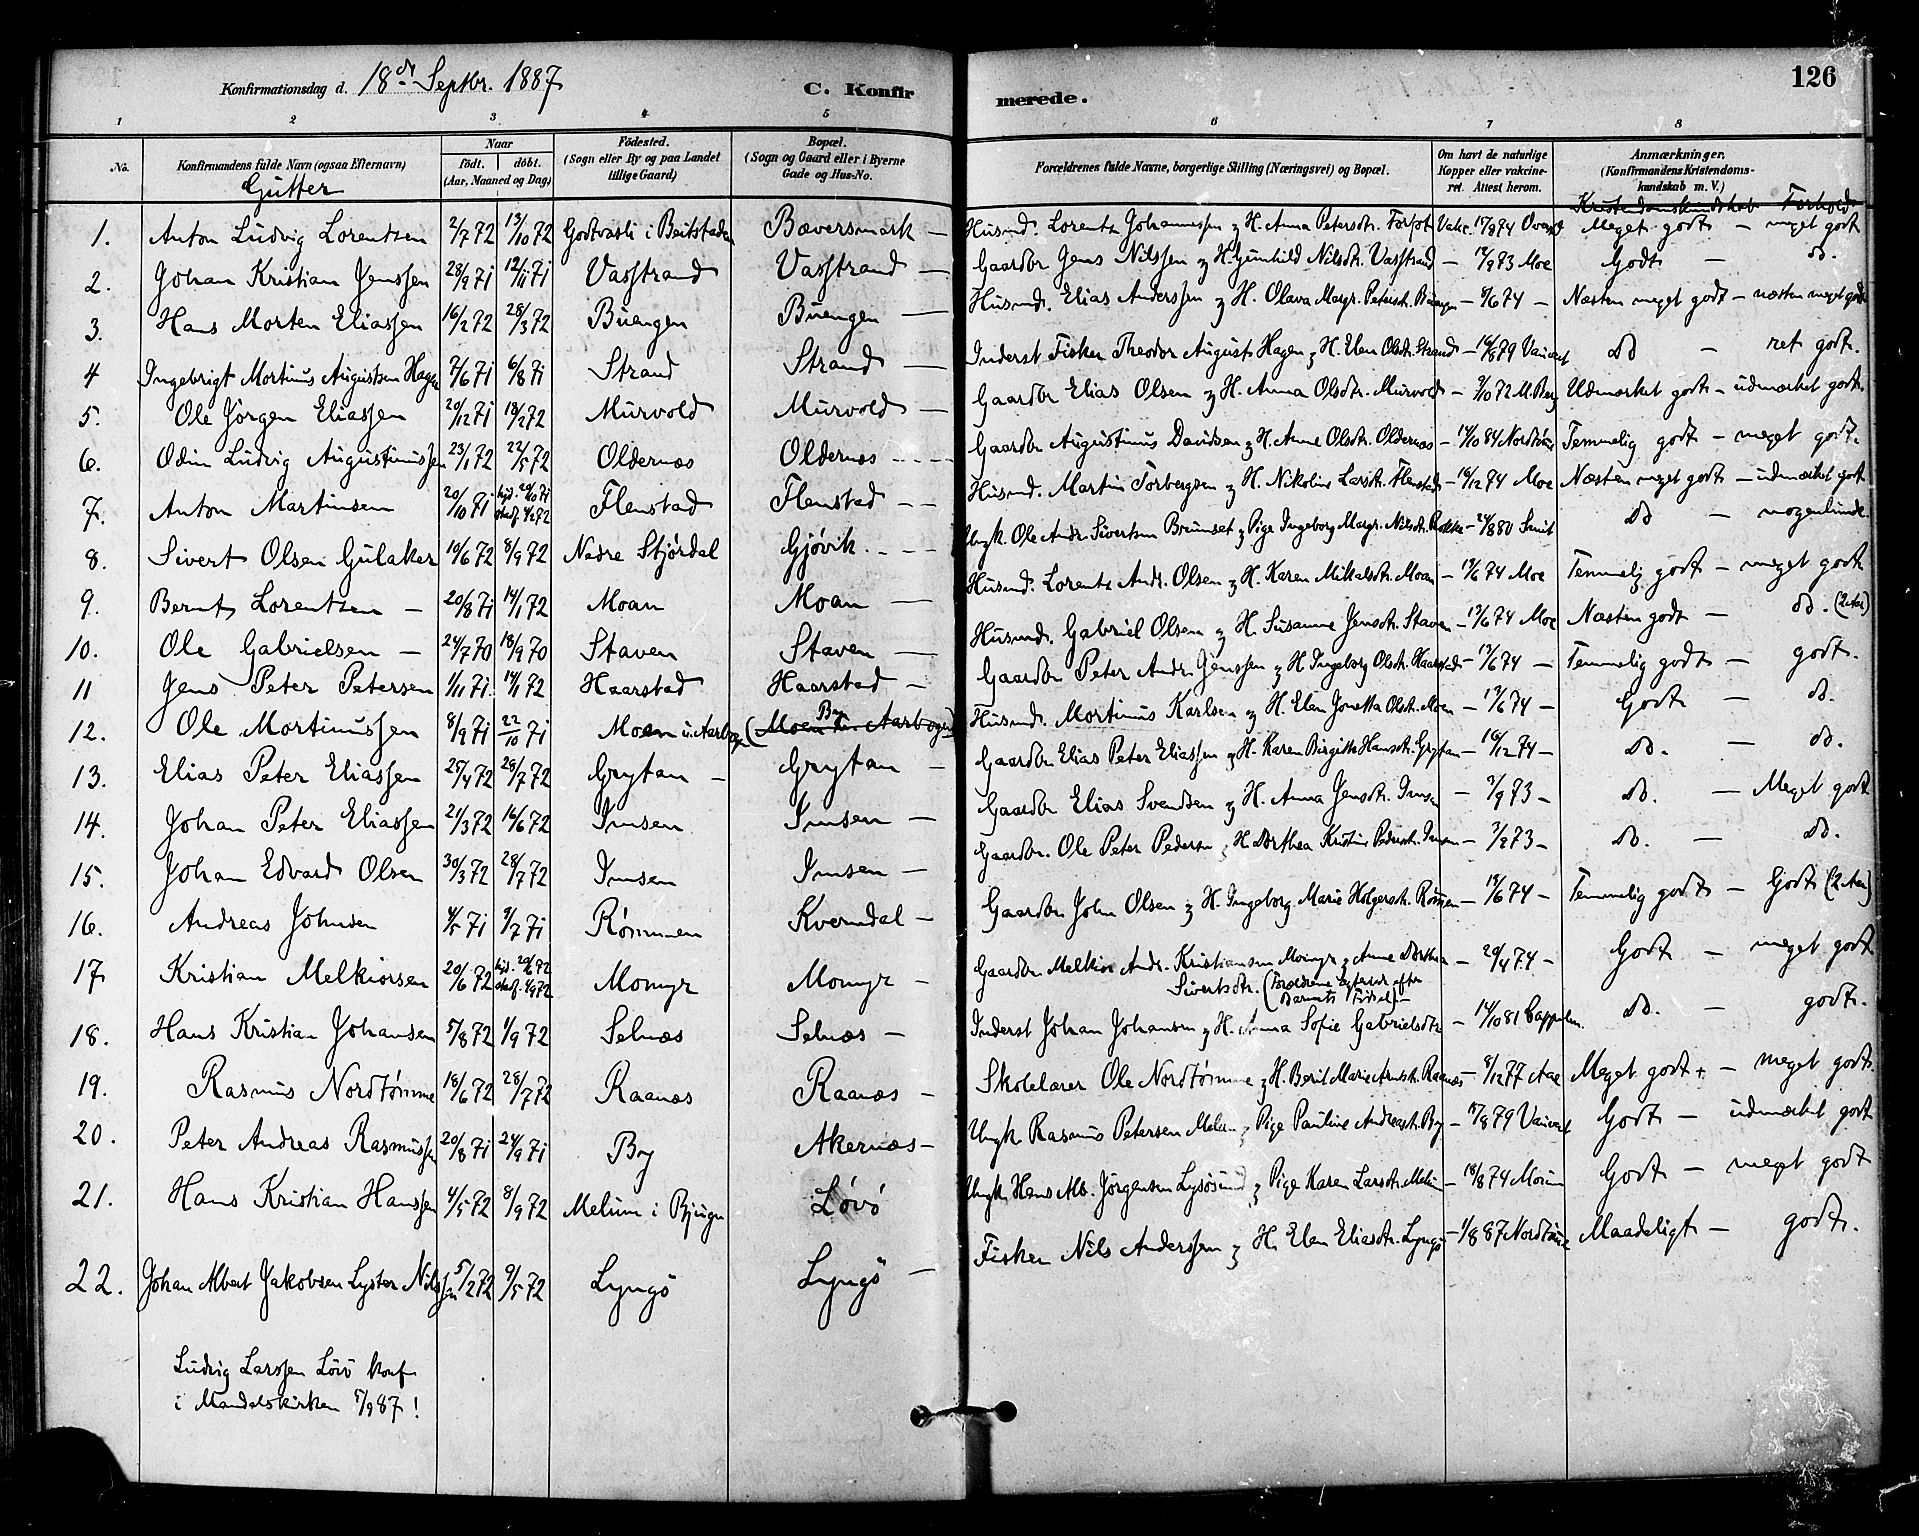 Konfirmationsdag d. 18de Septbr. 1887 C. Konfirmerede. 126
1 2 3 4 5 6 7 8
No. Konfirmandens fulde Navn (ogsaa Efternavn) Naar födt. döbt. (Aar, Maaned og Dag) Födested. (Sogn eller By og paa Landet tillige Gaard) Bopæl. (Sogn og Gaard eller i Byerne Gade og Hus-No.) Forældrenes fulde Navne, borgerlige Stilling (Næringsvei) og Bopæl. Om havt de naturlige Kopper eller vakcineret. Attest herom. Anmærkninger. (Konfirmandens Kristendomskundskab m. V.)
Gutter Kristendomskundskab Forhold
1. Anton Ludvig Lorentsen 2/7 72 13/10 72 Godtvasli i Beitstaden Bæversmark — Husmd. Lorents Johannessen & H. Anna Petersdtr. Vakc. 17/8 74 Meget godt — meget godt
2. Johan Kristian Jenssen 28/9 71 12/11 71 Vasstrand Vasstrand — Gaardbr Jens Nilssen & H. Gunhild Nilsdtr. Vasstrand — 17/9 73 Moe Godt — do.
3. Hans Morten Eliassen 16/2 72 28/3 72 Buengen Buengen — Husmd. Elias Anderssen & H. Olava Margr. Petersdtr. Buengen — 8/6 74 — Næsten meget godt — næsten meget godt
4 Ingebrigt Mortinus Augustsen Hagen 7/6 71 6/8 71 Strand Strand — Inderst Fisker Theodor August Hagen & H. Elen Olsdtr. Strand — 14/8 79 Do — ret godt.
5. Ole Jörgen Eliassen 20/12 71 18/2 72 Murvold Murvold — Gaardbr Elias Olsen & H. Anna Olsdtr. Murvold — 7/10 72 M. Berg Udmærket godt — udmærket godt.
6. Odin Ludvig Augustinussen 23/1 72 22/5 72 Oldernæs Oldernæs — Gaardbr Augustinus Davidsen & H. Anne Olsdtr. Oldernæs — 14/10 84 Nordtömme Temmelig godt — meget godt.
7. Anton Martinsen 20/10 71 hjd. 20/10 71 stadf. 4/2 72 Flenstad Flenstad — Husmd. Martin Torbergsen & H. Nikoline Larsdtr. Flenstad — 16/12 74 Moe Næsten meget godt — udmærket godt
8. Sivert Olsen Gulaker 10/6 72 8/9 72 Nedre Stjórdal Gjóvik — Ungk. Ole Andr. Sivertsen Bremset & Pige Ingeborg Margr. Nilsdtr. — 24/8 80 Smit Do — nogenlunde.
9. Bernt Lorentsen — 20/8 71 14/1 72 Moan Moan — Husmd. Lorents Andr. Olsen & H. Karen Mikalsdtr. Moan — 17/6 74 Moe Temmelig godt — meget godt
10. Ole Gabrielsen — 24/7 70 18/9 70 Staven Staven — Husmd. Gabriel Olsen & H. Susanne Jensdtr. Staven — 17/6 74 Moe Næsten godt — do. (2 Aar)
11 Jens Peter Petersen 1/11 71. 14/1 72 Haarstad Haarstad — Gaardbr Peter Andr. Jenssen & H. Ingeborg Olsdtr. Haarstad — 17/6 74 — Temmelig godt — godt.
12. Ole Mortinussen 8/9 71 22/10 71 Moen i Aarbogen (Moen i Aarbogen) By Husmd. Mortinus Karlsen & H. Elen Jonetta Olsdtr. Moen — 17/6 74 — Godt — do.
13. Elias Peter Eliassen 25/4 72 29/7 72 Grytan — Grytan — Gaardbr Elias Peter Eliassen & H. Karen Birgitte Hansdtr. Grytan — 16/12 74 — do. — do.
14. Johan Peter Eliassen 21/3 72 16/6 72 Imsen Imsen — Gaardbr Elias Svendsen & H. Anna Jensdtr. Imsen — 7/9 73 — do. — Meget godt
15. Johan Edvard Olsen 30/3 72 28/7 72 Imsen Imsen — Gaardbr. Ole Peter Pedersen & H. Dorthea Kristine Pedersdtr. Imsen — 7/2 73 — do. — do.
16. Andreas Johnsen 4/5 71 9/7 71 Rømmen Kverndal — Gaardbr John Olsen & H. Ingeborg Marie Holgersdtr. Römmen — 18/6 74 — Temmelig godt — Godt (2 Aar)
17 Kristian Melkiorsen 20/6 72 hjd. 20/6 72 stadf. 1/9 72 Momyr Momyr — Gaardbr Melkior Andr. Kristiansen Momyr & Anne Dorthea Sivertsdtr. (Forældrene ægteviet efter Barnets Födsel) — 20/4 74 — Godt — meget godt
18. Hans Kristian Johansen 5/8 72 1/9 72 Selnæs Selnæs — Inderst Johan Johansen & H. Anna Sofie Gabrielsdtr — 14/10 81 Cappelen. do. — godt.
19. Rasmus Nordtømme 18/6 72 28/7 72 Raanæs Raanæs — Skolelærer Ole Nordtømme & H. Berit Marie Arnsdtr. Raanæs — 8/12 77 Aae Meget godt + — meget godt
20. Peter Andreas Rasmussen 20/8 71 24/9 71 By Akernæs — Ungk Rasmus Petersen Melan & Pige Pauline Andreasdtr. By — 18/8 79 Godt — udmærket godt
21. Hans Kristian Hanssen 4/5 72 8/9 72 Melum i Bjugn Lóvó Ungk Hans Alb. Jörgensen Lysösund & Pige Karen Larsdtr. Melum — 18/8 74 Godt — meget godt
22. Johan Albert Jakobsen Lyster Nilssen 5/2 72 9/5 72 Lyngö Lyngö — Fisker Nils Anderssen & H. Elen Eliasdtr. Lyngö — 1/8 87 Nordtömme Maadeligt — godt.
Ludvig Larssen Lövö konf
i Mandalskirken 5/9 87!